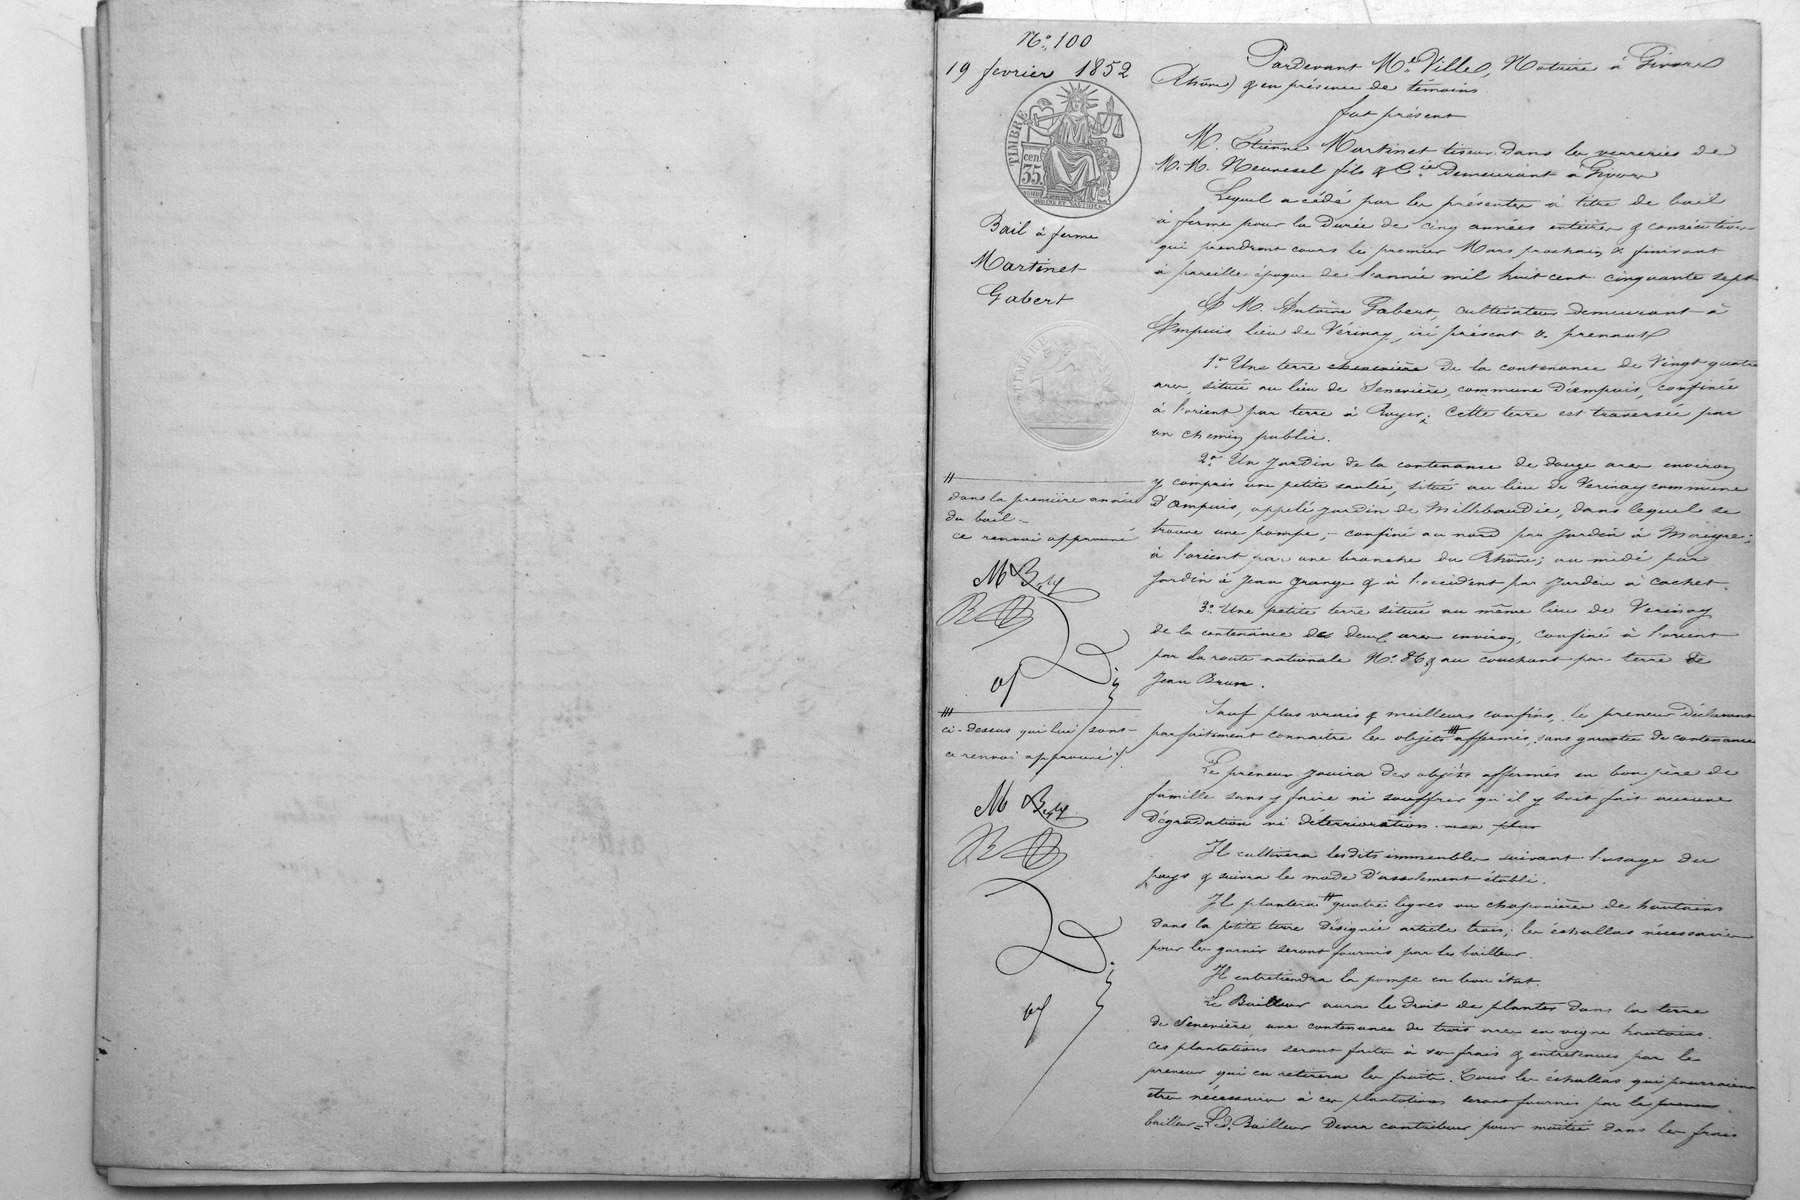 N.° 100
19 fevrier 1852
TIMBRE
cen
35
Bail à ferme
Martinet
Gabert
TIMBRE
dans la première année
du bail
ce renvoi approuvé
ci-dessus qui lui sont
ce renvoi approuvé
Pardevant M.e Ville, Notaire à Givors
Rhône) & en présence de témoins
fut présent
M. Etienne Martinet tiseur dans les verreries de
M.M. Neuvesel fils & C.ie Demeurant à Givors
Lequel a cédé par les présentes à titre de bail
à ferme pour la durée de cinq années entières & consécutives
qui prendront cours le premier Mars prochain & finiront
à pareille époque de l'année mil huit cent cinquante sept
A M. Antoine Gabert, cultivateur demeurant à
Ampuis lieu de Vérinay, ici présent & prenant
1.° Une terre de la contenance de Vingt quatre
ares, située au lieu de Senevière, commune d'ampuis, confinée
à l'orient par terre à Royer; Cette terre est traversée par
un chemin public.
2.° Un Jardin de la contenance de douze ares environ
y compris une petite saulée, situé au lieu de Verinay commune
D'ampuis, appelé jardin de Millebaudie, dans lequel se
trouve une pompe; confiné au nord par Jardin à
à l'orient par une branche du Rhône; au midi par
Jardin à Jean Grange & à l'occident par Jardin à Cachet.
3.° Une petite terre située au même lieu de Verinay
de la contenance de deux ares environ, confiné à l'orient
par la route nationale N.° 86 & au couchant par terre de
Jean Brun.
Sauf plus vrais & meilleurs confins, le preneur déclarant
parfaitement connaitre les objets affermés, sans garantie de contenance
Le preneur jouira des objets affermés en bon père de
famille sans y faire ni souffrir qu'il y soit fait aucune
Dégradation ni deterrioration non plus
Il cultivera lesdits immeubles suivant l'usage du
pays & suivra le mode d'assolement établi.
Il plantera quatre lignes ou chaponières de hautains
dans la petite terre désignée article trois; les échallas nécessaires
pour les garnir seront fournis par le bailleur.
Il entretiendra la pompe en bon état.
Le Bailleur aura le droit de planter dans la terre
de Senevière, une contenance de trois ares en vigne hautains.
Ces plantations seront faites à ses frais & entretenues par le
preneur qui en retirera les fruits. Tous les échallas qui pourraient
être nécessaires à ces plantations seront fournis par le preneur.
bailleur = Le d. Bailleur devra contribuer pour moitié dans les frais